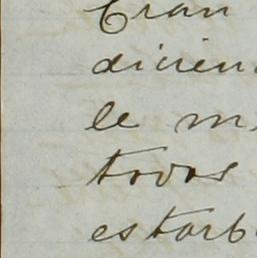 Eran
dicien
le m
todos
estorb